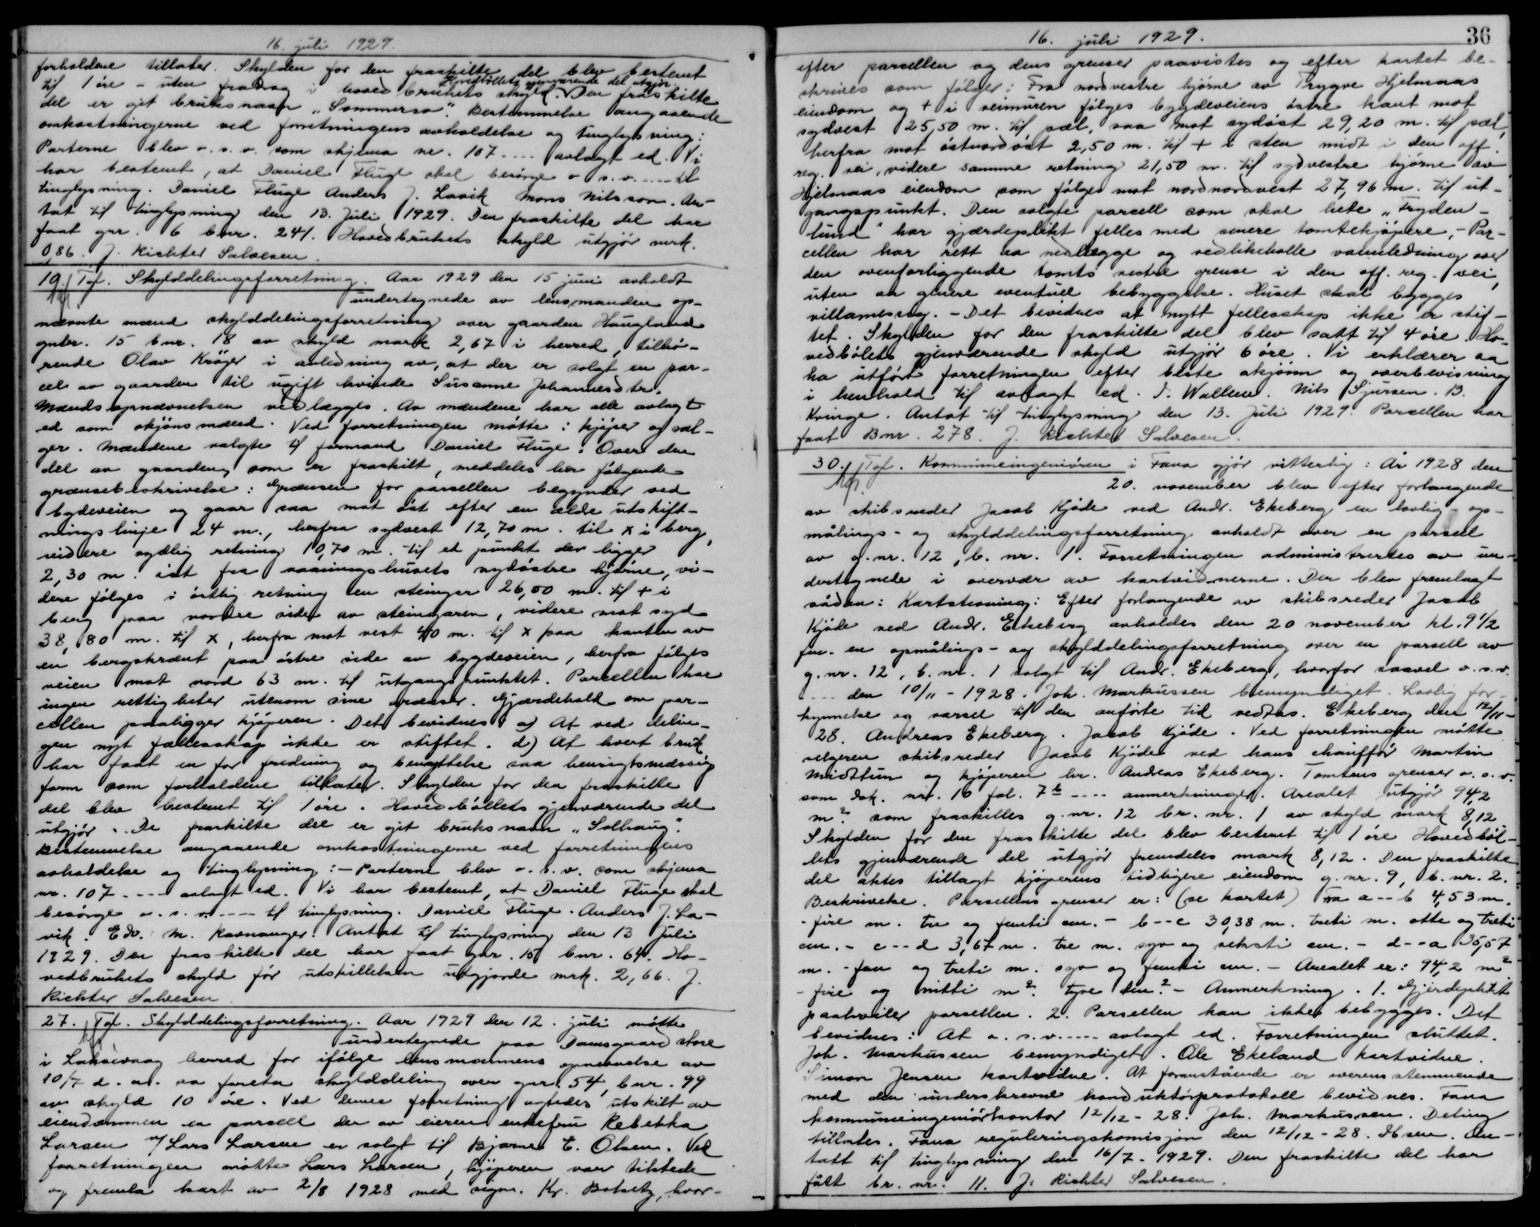 16. juli 1929.
forholdene tillater. Skylden for den fraskilte del blev bestemt
til 1 øre - uten fradrag i hovedbrukets skyld. Den fraskilte
Hovedbøllets gjenværende del utgjør.
del er git bruksnavn "Sommerro". Bestemmelse angaaende
omkostningerne ved forretningens avholdelse og tinglysning:
Parterne blev o. s. v. som skjema nr. 107 .... avlagt ed. Vi
har bestemt, at Daniel Fluge skal besørge o. s. v. .... til
tinglysning. Daniel Fluge Anders J. Lavik Mons Nilsson. An-
tat til tinglysning den 13. Juli 1929. Den fraskilte del har
faat gnr. 6 bnr. 241. Hovedbrukets skyld utgjør mrk.
0,86. J. Richter Salvesen.
19. Tgf. Skylddelingsforretning. Aar 1929 den 15 juni avholdt
undertegnede av lensmanden op-
nævnte mænd skylddelingsforretning over gaarden Haugland
gnbr. 15 bnr. 18 av skyld mark 2,67 i herred, tilhø-
rende Olav Krøger i anledning av, at der er solgt en par-
cel av gaarden til ugift kvinde Susanne Johannesdtr.
Mandsopnævnelsen vedlægges. Av mændene har alle avlagt
ed som skjønsmænd. Ved forretningen møtte: kjøper og sæl-
ger. Mændene valgte til formand Daniel Fluge. Over den
del av gaarden, som er fraskilt, meddeles her følgende
grænsebeskrivelse: Grænsen for parsellen begynder ved
bygdeveien og gaar saa mot øst efter en ælde utskift-
ningslinje 24 m., herfra sydvest 12,70 m. til x i berg,
videre sydlig retning 10,70 m. til et punkt der ligger
2,30 m. øst fra vaaningshusets sydøstre hjørne, vi-
dere følges i østlig retning en steingar 26,00 m. til + i
berg paa nordre siden av steingaren, videre mot syd
38,80 m. til x, herfra mot vest 40 m. til x paa kanten av
en bergskrænt paa østre side av bygdeveien, herfra følges
veien mot nord 63 m. til utgangspunktet. Parsellen har
ingen rettigheter utenom sine grænser. Gjærdehold om par-
cellen paaligger kjøperen. Det bevidnes a) At ved delin-
gen nyt fællesskap ikke er stiftet. d) At hvert bruk
har faat en for fredning og benyttelse saa hensigtsmæssig
form som forholdene tillater. Skylden for den fraskilte
del blev bestemt til 1 øre. Hovedbøllets gjenværende del
utgjør.. De fraskilte del er git bruksnavn "Solhaug".
Bestemmelse angaaende omkostningerne ved forretningens
avholdelse og tinglysning: - Parterne blev o. s. v. som skjema
nr. 107 .... avlagt ed. Vi har bestemt, at Daniel Fluge skal
besørge o. s. v. .... til tinglysning. Daniel Fluge. Anders J. La-
vik. Edv. M. Kavnanger. Antat til tinglysning den 13 Juli
1929. Den fraskilte del har faat gnr. 15 bnr. 64. Ho-
vedbrukets skyld før utskillelsen utgjorde mrk. 2,66. J.
Richter Salvesen.
27. Tgf. Skylddelingsforretning. Aar 1929 den 12. juli møtte
undertegnede paa Damsgaard store
i Laksevaag herred for ifølge lensmannens opnevelse av
10/7 d. a. aa foreta skylddeling over gnr. 54, bnr. 99
av skyld 10 øre. Ved denne forretning agtedes utskilt av
eiendommen en parsell der av eieren enkefru Rebekka
Larsen v/ Lars Larsen er solgt til Bjarne E. Olsen. Ved
forretningen møtte Lars Larsen, kjøperen var tilstede
og fremla kart av 2/8 1928 med sign. Kr. Botnetz, hvor-
16. juli 1929.
36
efter parsellen og dens grenser paavistes og efter kartet be-
skrives som følger: Fra nordvestre hjørne av Trygve Hjelmaas
eiendom og + i veimuren følges bygdeveiens østre kant mot
sydvest 25,50 m. til pæl, saa mot sydøst 29,20 m. til pæl,
herfra mot østnordøst 2,50 m. til + i sten midt i den off.
reg. vei, videre samme retning 21,50 m. til sydvestre hjørne av
Hjelmaas eiendom som følges mot nordnordvest 27,96 m. til ut-
gangspunkt. Den solgte parcell som skal hete "Fryden-
lund" har gjærdeplikt felles med senere tomtekjøpere, - Par-
cellen har rett aa nedlegge og vedlikeholde vannledning over
den ovenforliggende tomts vestre grense i den off. reg. vei,
uten aa genere eventuell bebyggelse. Huset skal bygges
villamessig. - Det bevidnes at nytt fellesskap ikke er stif-
tet. Skylden for den fraskilte del blev satt til 4 øre. Ho-
vedbølets gjenværende skyld utgjør 6 øre. Vi erklærer aa
ha utført forretningen efter beste skjønn og overbevisning
i henhold til avlagt ed. J. Wallem. Nils Sjursen. B.
Kvinge. Antat til tinglysning den 13. Juli 1929. Parsellen har
faat Bnr. 278. J. Richter Salvesen.
30. Tgf. Kommuneingeniøren i Fana gjør vitterlig: År 1928 den
20. november blev efter forlangende
av skibsreder Jacob Kjøde ved Andr. Ekeberg en lovlig op-
målings- og skylddelingsforretning avholdt over en parsell
av g.nr. 12, b.nr. 1. Forretningen administrertes av un-
dertegnede i overvær av kartvidnerne. Der blev fremlagt
sådan: Kartstevning: Efter forlangende av skibsreder Jacob
Kjøde ved Andr. Ekeberg avholdes den 20 november kl. 9 1/2
fm. en opmålings- og skylddelingsforretning over en parsell av
g.nr. 12, b.nr. 1 solgt til Andr. Ekeberg, hvorfor saavel o. s. v.
.... den 10/11 - 1928. Joh. Markussen bemyndiget. Lovlig for-
kynnelse og varsel til den anførte tid vedtas. Ekeberg den 12/11 -
28. Andreas Ekeberg. Jacob Kjøde. Ved forretningen møtte
selgeren skibsreder Jacob Kjøde ved hans chauffør Martin
Midttun og kjøperen hr. Andreas Ekeberg. Tomtens grenser o. s. v.
som dok. nr. 16 fol. 7b .... anmerkninger. Arealet utgjør 94,2
m² som fraskilles g.nr. 12 br.nr. 1 av skyld mark 8,12
Skylden for den fraskilte del blev bestemt til 1 øre Hovedbøl-
lets gjenværende del utgjør fremdeles mark 8,12. Den fraskilte
del aktes tillagt kjøperens tidligere eiendom g.nr. 9, b.nr. 2.
Beskrivelse. Parsellens grenser er: (se kartet) Fra a -- b 4,53 m.
- fire m. tre og femti cm. - b -- c 30,38 m. treti m. otte og treti
cm. - c -- d 3,67 m. tre m. syv og seksti cm. - d -- a 35,57
m. - fem og treti m. syv og femti cm. - Arealet er: 94,2 m²
- fire og nitti m². tyve dm.² - Anmerkning. 1. Gjerdeplikt
paahviler parsellen. 2. Parsellen kan ikke bebygges. Det
bevidnes: At o. s. v. .... avlagt ed. Forretningen sluttet.
Joh. Markussen bemyndiget. Ole Ekeland kartvidne.
Simon Jensen kartvidne. At foranstående er overensstemmende
med den underskrevne konduktørprotokoll bevidnes. Fana
kommuneingeniørkontor 12/12 - 28. Joh. Markussen. Deling
tillates. Fana reguleringskomisjon den 12/12 - 28. An-
tatt til tinglysning den 16/7 - 1929. Den fraskilte del har
fått br.nr. 11. J. Richter Salvesen.